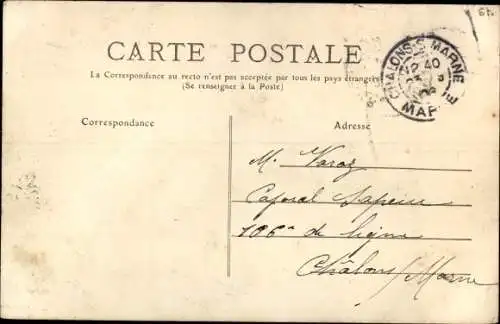 CARTE POSTALE
La Correspondance au recto n'est pas acceptée par tous les pays étrangers
(Se renseigner à la Poste)
CHALONS-S-MARNE
40
MARNE
Correspondance
Adresse
M. Varoz
Caporal Sapeur
106e de ligne
Châlons/Marne